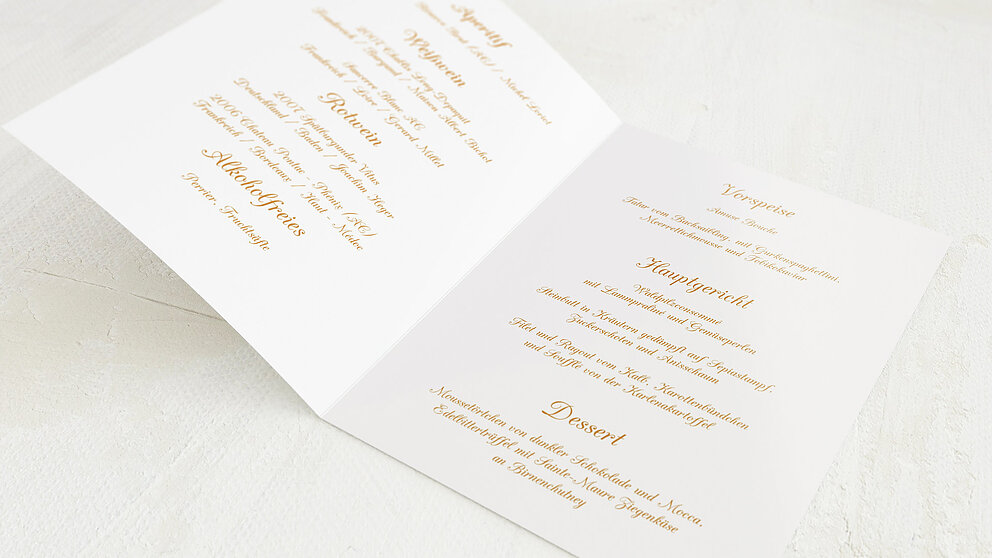 Aperitif
/ Michel Loriot
Weißwein
2007 Chablis Long Depaquit
Frankreich / Burgund / Maison Albert Bichot
Sancerre Blanc AC
Frankreich / Loire / Gerard Millet
Rotwein
2007 Spätburgunder Vitus
Deutschland / Baden / Joachim Heger
2006 Chateau Pontac - Phénix (AC)
Frankreich / Bordeaux / Haut - Médoc
Alkoholfreies
Perrier, Fruchtsäfte,
Vorspeise
Amuse Bouche
Tatar vom Bachsaibling, mit Gurkenspaghettini,
Meerrettichmousse und Feldkekaviar
Hauptgericht
Waldpilzconsommé
mit Lammpraliné und Gemüseperlen
Steinbutt in Kräutern gedämpft auf Sepiastampf,
Zuckerschoten und Anisschaum
Filet und Ragout vom Kalb, Karottenbändchen
und Soufflé von der Harlenakartoffel
Dessert
Moussetörtchen von dunkler Schokolade und Mocca,
Edelbittertrüffel mit Sainte-Maure Ziegenkäse
an Birnenchutney